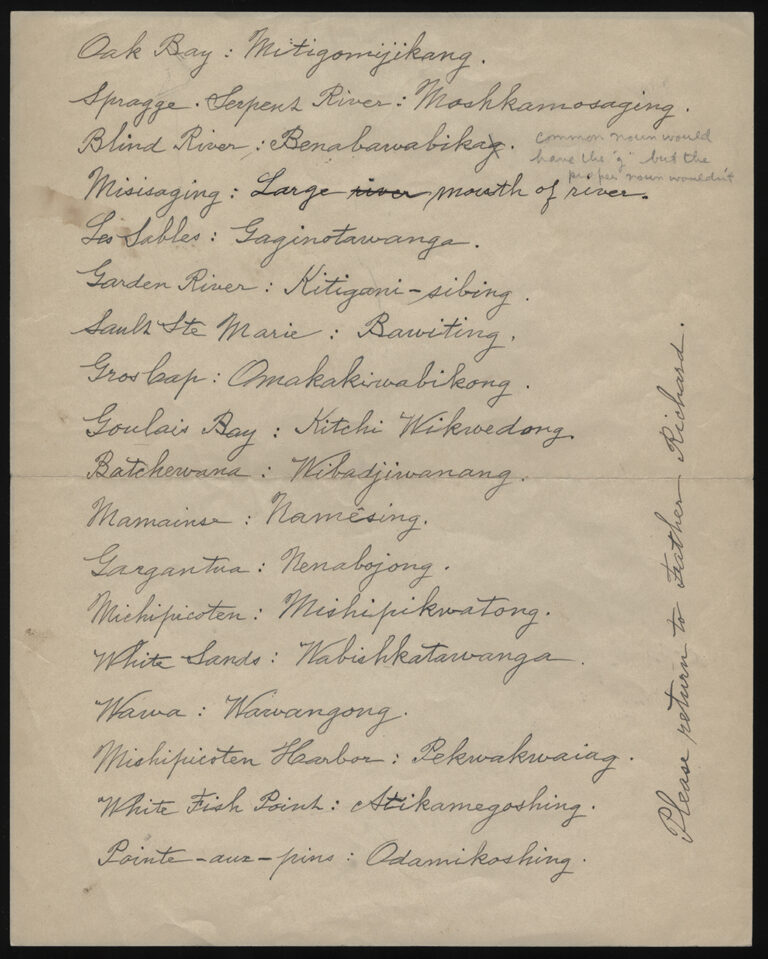 Oak Bay : Mitigomijikang.
Spragge. Serpent River : Moshkamosaging.
Blind River : Benabawabikag.
common noun would
have the "g" but the
proper noun wouldn't
Misisaging : Large river mouth of river.
Les Sables : Gaginotawanga.
Garden River : Kitigani-sibing.
Sault Ste Marie : Bawiting.
Gros Cap : Omakakiwabikong.
Goulais Bay : Kitchi Wikwedong.
Batchewana : Wibadjiwanang.
Mamainse : Namesing.
Gargantua : Nenabojong.
Michipicoten : Mishipikwatong.
White Sands : Wabishkatawanga.
Wawa : Wawangong.
Mishipicoten Harbor : Pekwakwaiag.
White Fish Point : Atikamegoshing.
Pointe-aux-pins : Odamikoshing.
Please return to Father Richard.